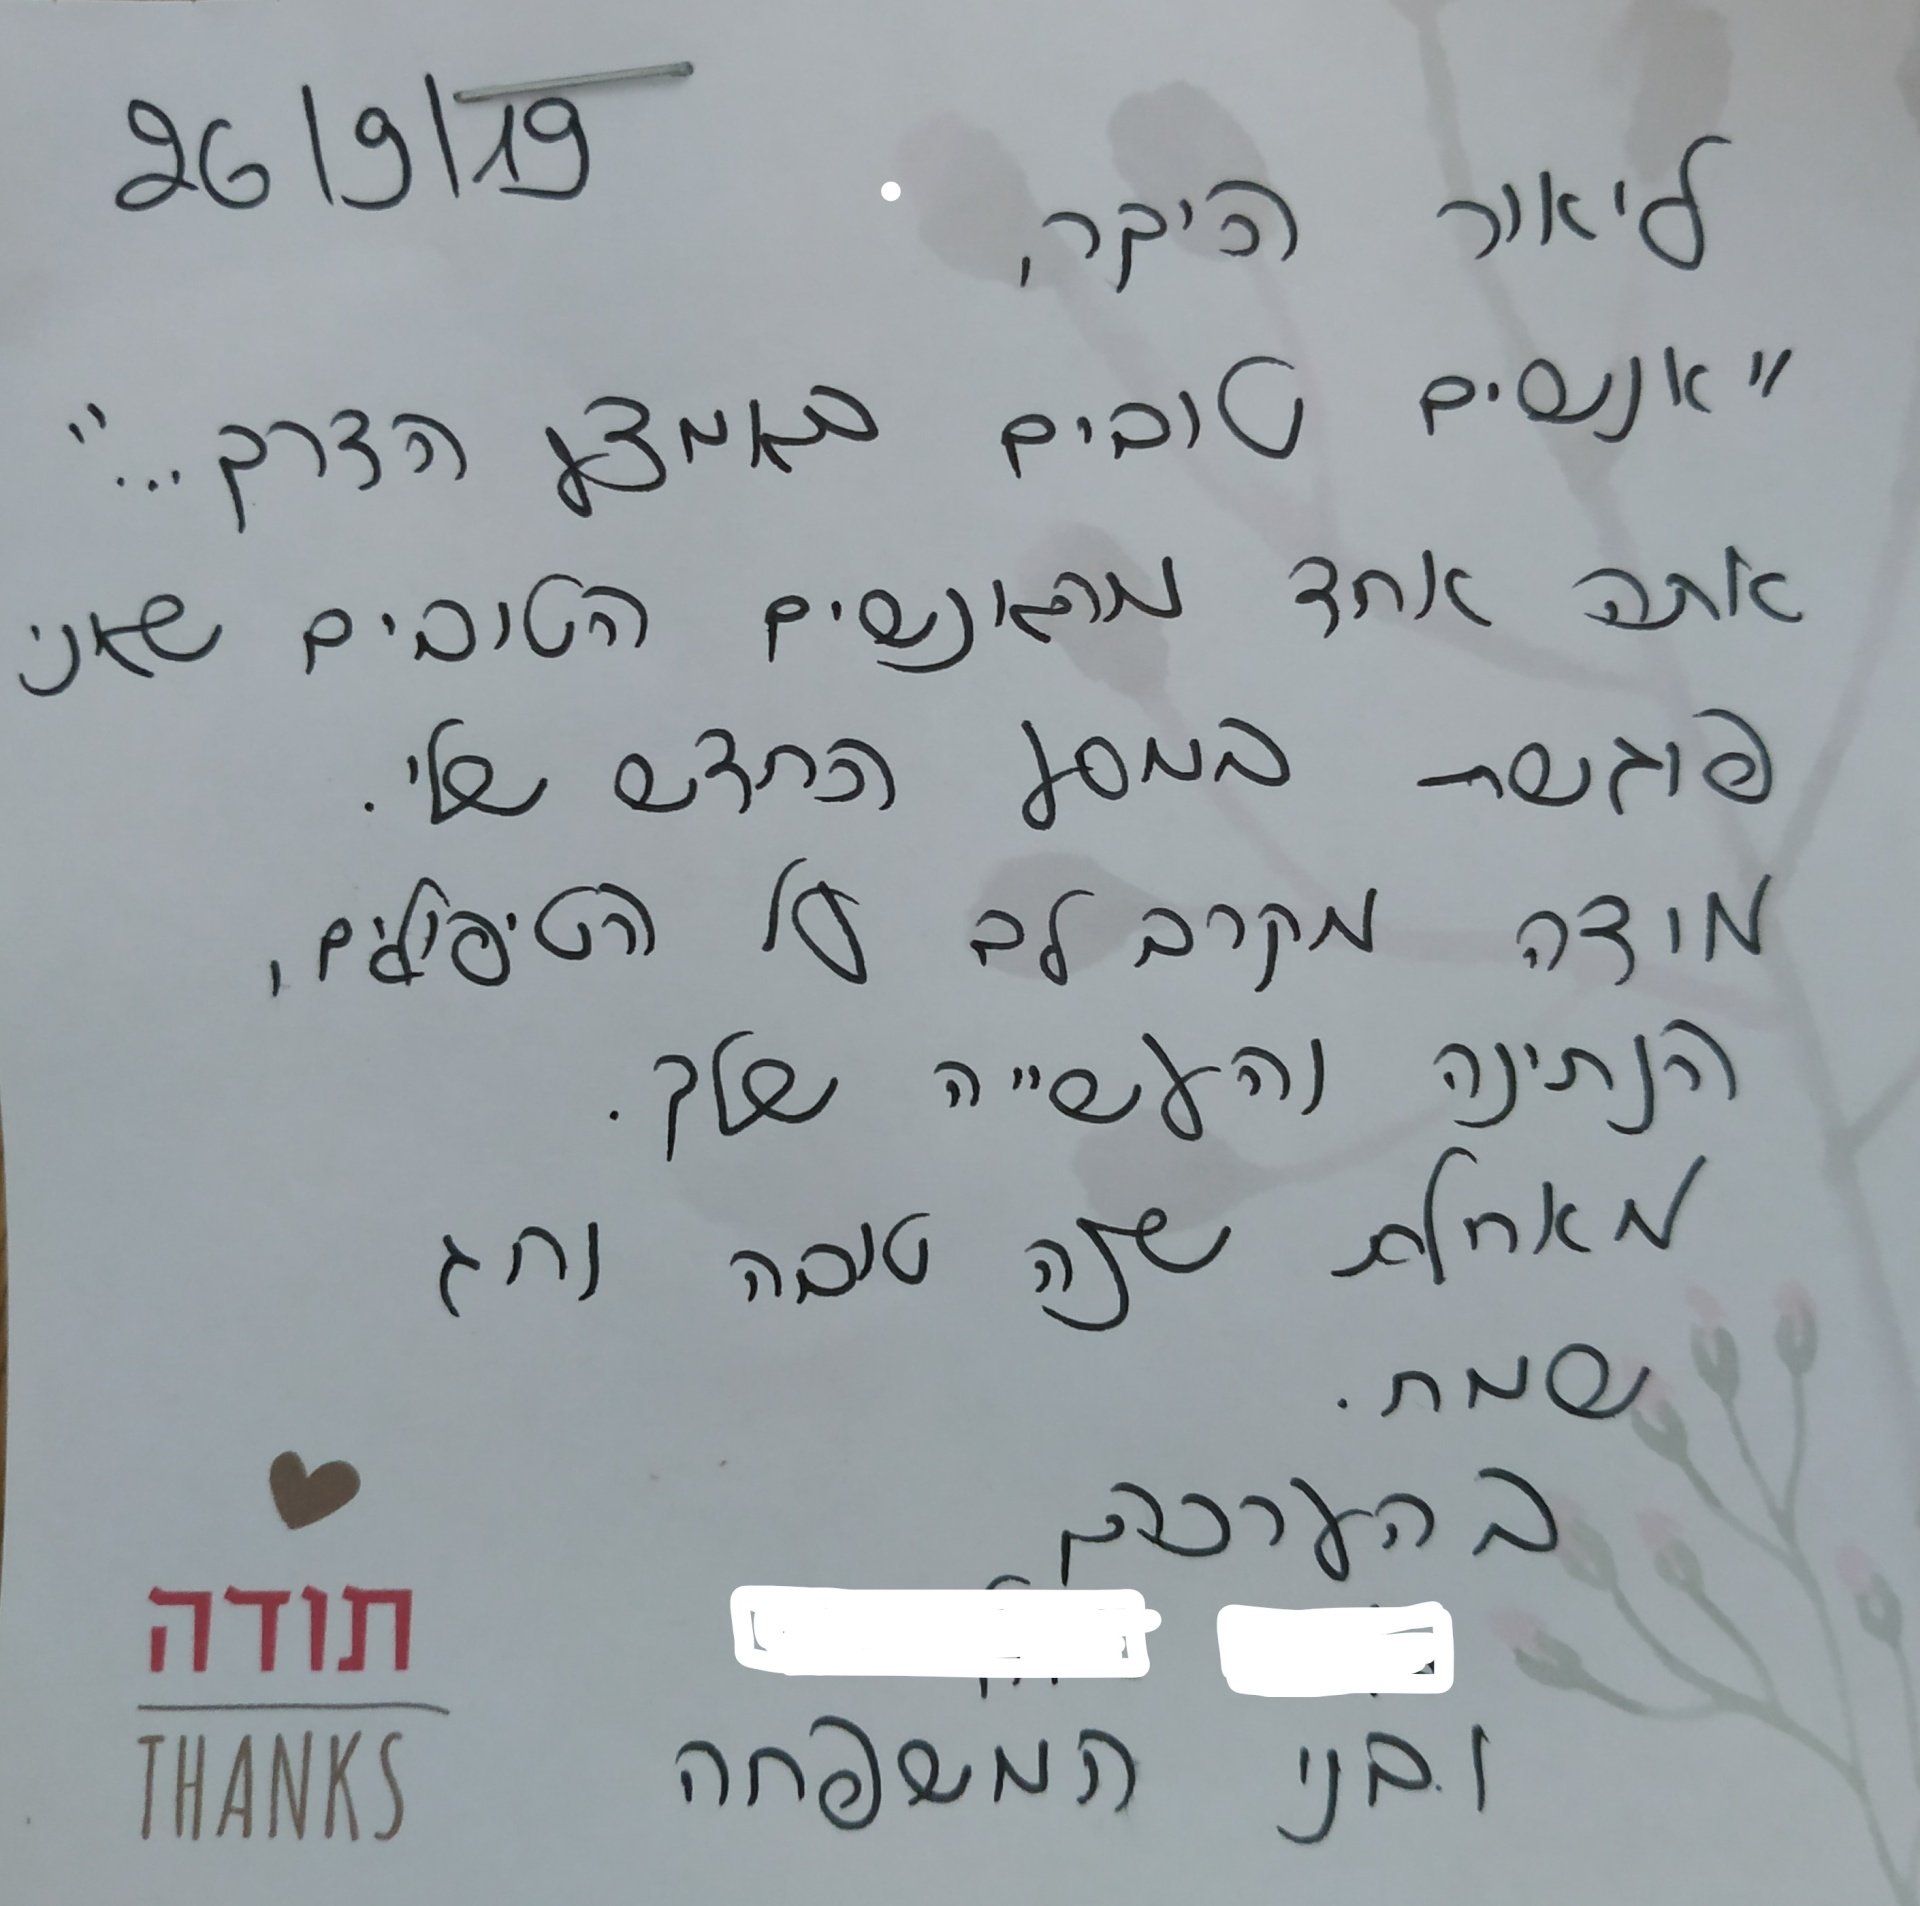 26/9/19
ליאור היקר,
"אנשים טובים באמצע הדרך..."
אתה אחד מהאנשים הטובים שאני
פוגשת במסע החדש שלי.
מודה מקרב לב על הטיפולים,
הנתינה והעשייה שלך.
מאחלת שנה טובה וחג
שמח.
בהערכה
ובני המשפחה
תודה
THANKS